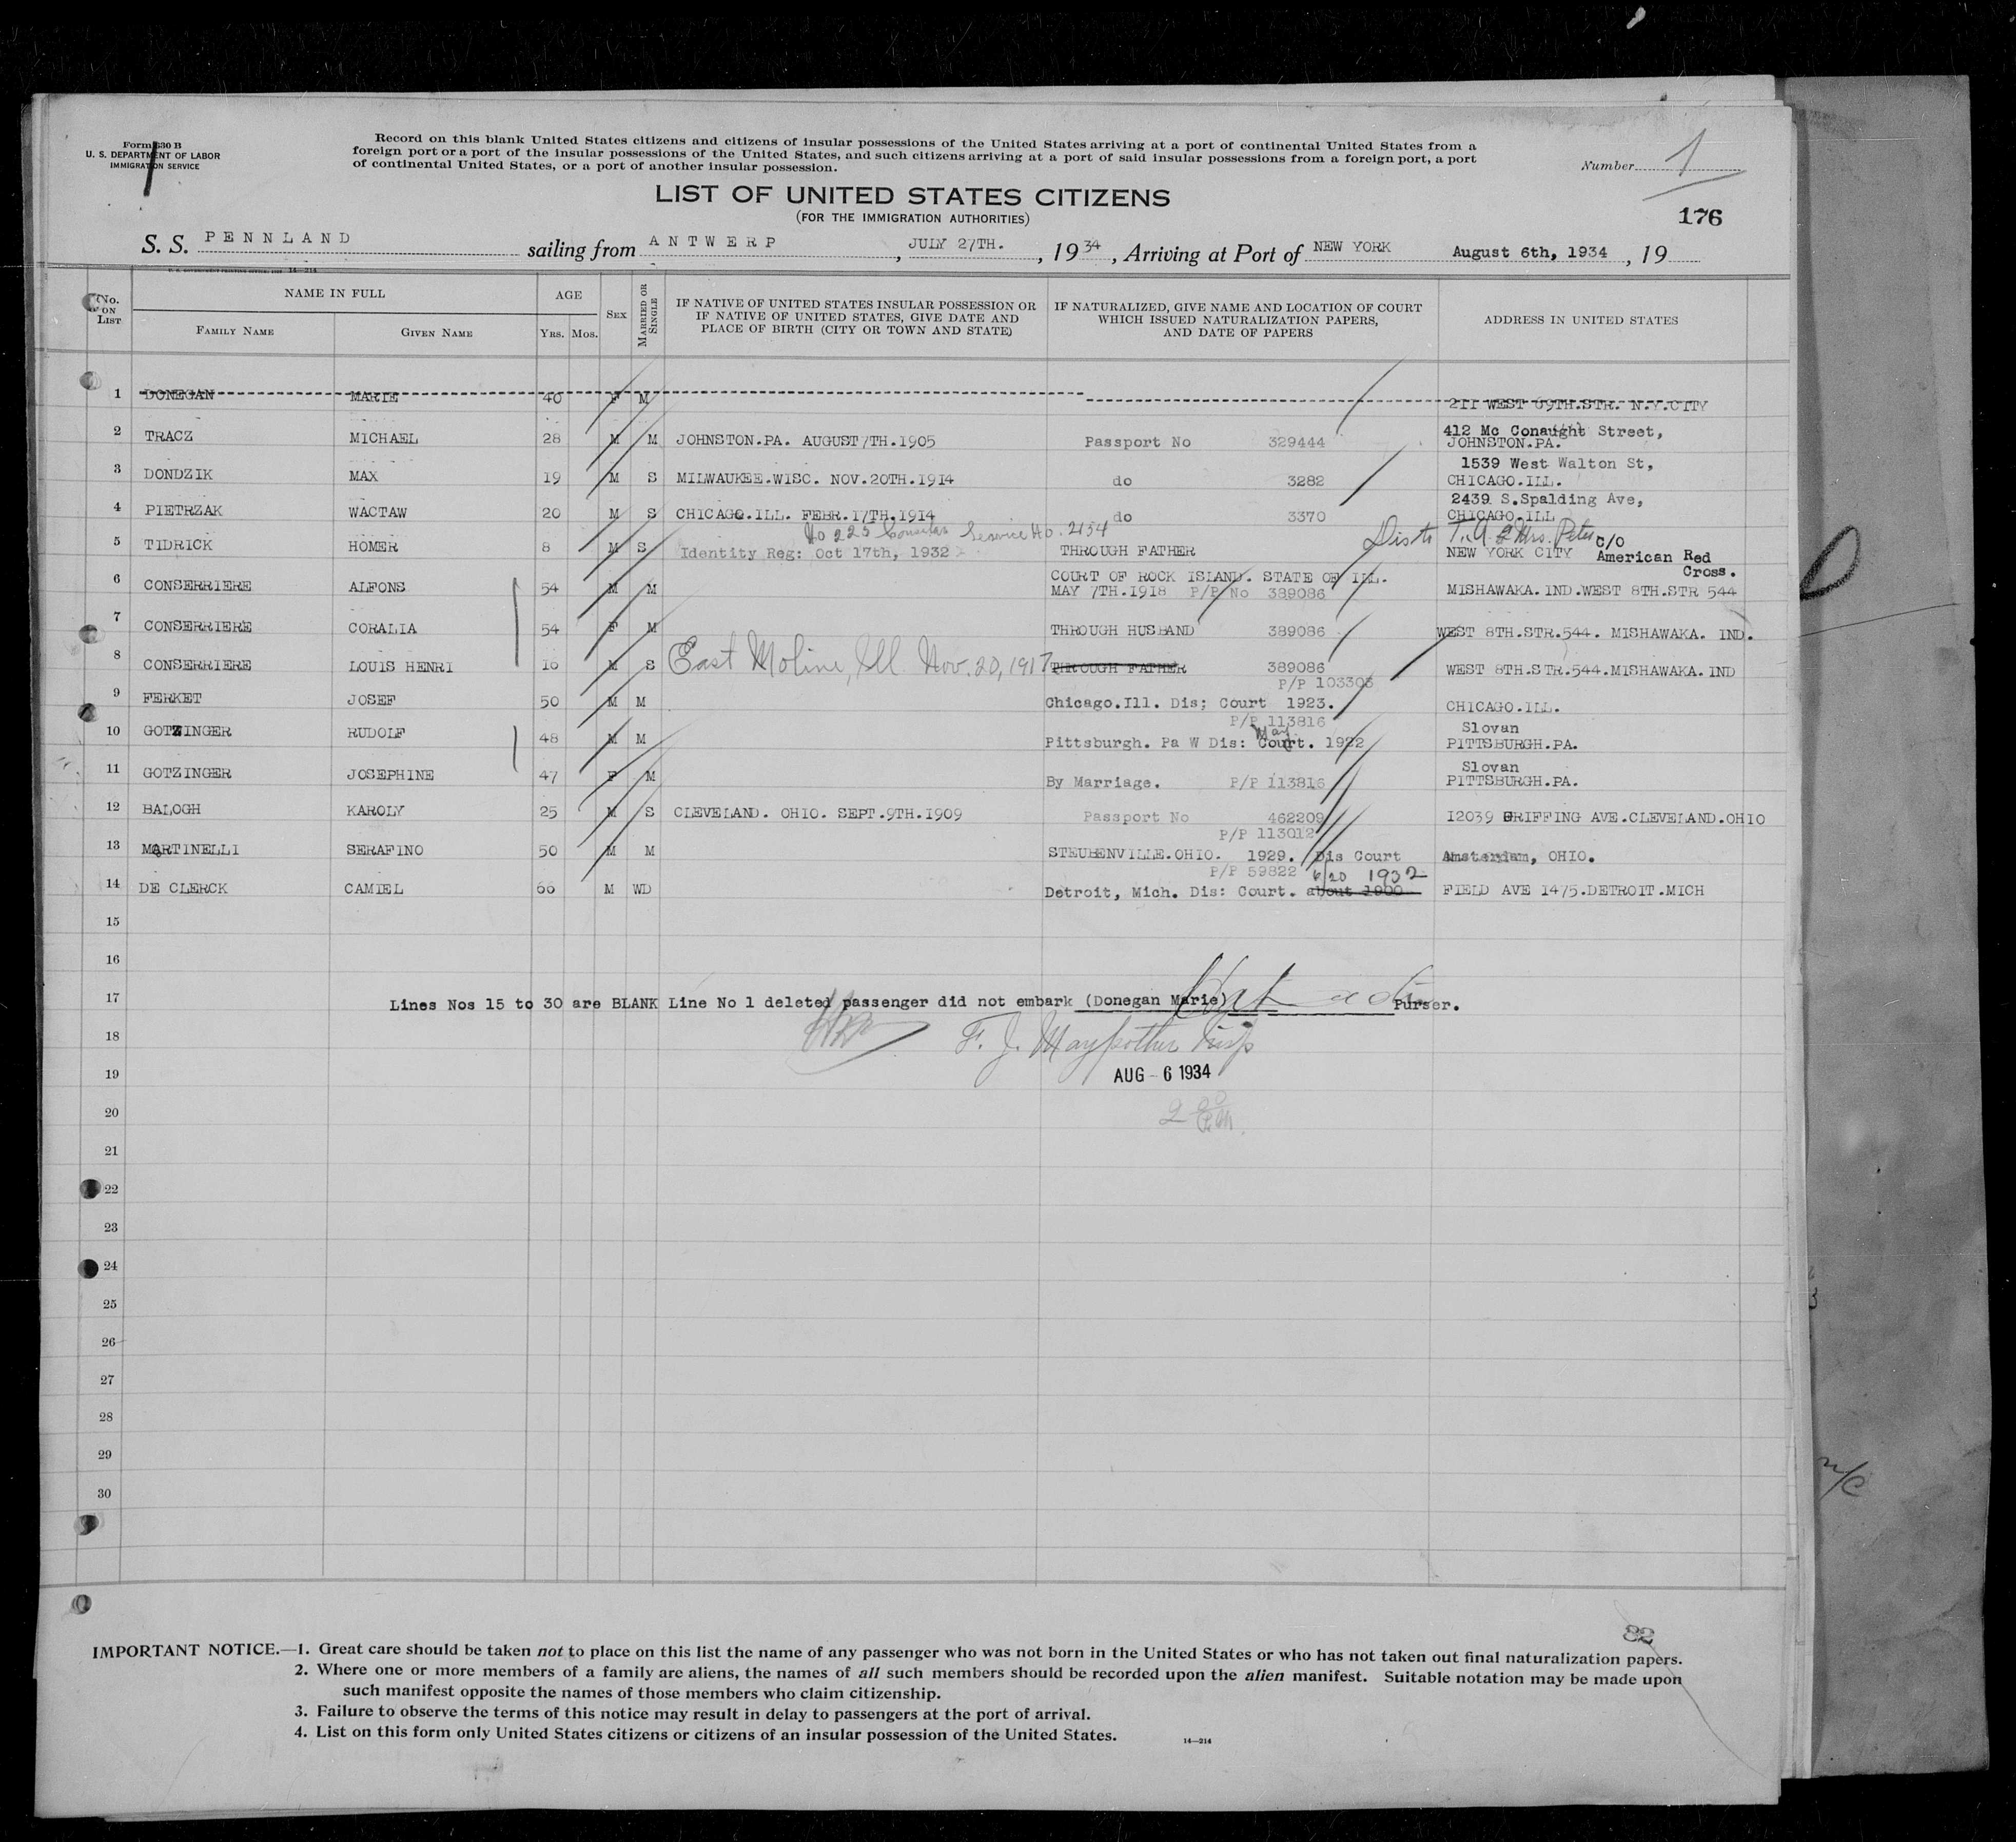 Form 630 B
U. S. DEPARTMENT OF LABOR
IMMIGRATION SERVICE
Record on this blank United States citizens and citizens of insular possessions of the United States arriving at a port of continental United States from a
foreign port or a port of the insular possessions of the United States, and such citizens arriving at a port of said insular possessions from a foreign port, a port
of continental United States, or a port of another insular possession.
Number 1
LIST OF UNITED STATES CITIZENS
(FOR THE IMMIGRATION AUTHORITIES)
176
S. S. PENNLAND sailing from ANTWERP, JULY 27TH., 1934, Arriving at Port of NEW YORK August 6th, 1934, 19
No. ON LIST
NAME IN FULL
FAMILY NAME GIVEN NAME
AGE
Yrs. Mos.
SEX
MARRIED OR SINGLE
IF NATIVE OF UNITED STATES INSULAR POSSESSION OR
IF NATIVE OF UNITED STATES, GIVE DATE AND
PLACE OF BIRTH (CITY OR TOWN AND STATE)
IF NATURALIZED, GIVE NAME AND LOCATION OF COURT
WHICH ISSUED NATURALIZATION PAPERS,
AND DATE OF PAPERS
ADDRESS IN UNITED STATES
1 DONEGAN MARIE 40 F M 211 WEST 69TH.STR. N.Y.CITY
2 TRACZ MICHAEL 28 M M JOHNSTON.PA. AUGUST 7TH.1905 Passport No 329444 412 Mc Conaught Street,
JOHNSTON.PA.
3 DONDZIK MAX 19 M S MILWAUKEE.WISC. NOV.20TH.1914 do 3282 1539 West Walton St,
CHICAGO.ILL.
4 PIETRZAK WACTAW 20 M S CHICAGO.ILL. FEBR.17TH.1914 do 3370 2439 S.Spalding Ave,
CHICAGO.ILL
No 225 Consular Service No. 2154
5 TIDRICK HOMER 8 M S Identity Reg: Oct 17th, 1932 THROUGH FATHER NEW YORK CITY c/o
American Red
Cross.
6 CONSERRIERE ALFONS 54 M M COURT OF ROCK ISLAND. STATE OF ILL.
MAY 7TH.1918 P/P No 389086 MISHAWAKA.IND.WEST 8TH.STR 544
7 CONSERRIERE CORALIA 54 F M THROUGH HUSBAND 389086 WEST 8TH.STR.544. MISHAWAKA. IND.
8 CONSERRIERE LOUIS HENRI 16 M S East Moline, Ill Nov. 20, 1917 THROUGH FATHER 389086 WEST 8TH.STR.544.MISHAWAKA.IND
P/P 103303
9 FERKET JOSEF 50 M M Chicago.Ill. Dis; Court 1923. CHICAGO.ILL.
P/P 113816
May
10 GOTZINGER RUDOLF 48 M M Pittsburgh. Pa W Dis: Court. 1922 Slovan
PITTSBURGH.PA.
11 GOTZINGER JOSEPHINE 47 F M By Marriage. P/P 113816 Slovan
PITTSBURGH.PA.
12 BALOGH KAROLY 25 M S CLEVELAND. OHIO. SEPT.9TH.1909 Passport No 462209 12039 GRIFFING AVE.CLEVELAND.OHIO
P/P 113012
13 MARTINELLI SERAFINO 50 M M STEUBENVILLE.OHIO. 1929. Dis Court Amsterdam, OHIO.
P/P 59822 6/20 1932
14 DE CLERCK CAMIEL 66 M WD Detroit, Mich. Dis: Court. about 1900 FIELD AVE 1475.DETROIT.MICH
15
16
17 Lines Nos 15 to 30 are BLANK Line No 1 deleted passenger did not embark (Donegan Marie) Purser.
18 F. J. Maypother Insp
19 AUG - 6 1934
20
21
22
23
24
25
26
27
28
29
30
82
IMPORTANT NOTICE.—1. Great care should be taken not to place on this list the name of any passenger who was not born in the United States or who has not taken out final naturalization papers.
2. Where one or more members of a family are aliens, the names of all such members should be recorded upon the alien manifest. Suitable notation may be made upon
such manifest opposite the names of those members who claim citizenship.
3. Failure to observe the terms of this notice may result in delay to passengers at the port of arrival.
4. List on this form only United States citizens or citizens of an insular possession of the United States.
14—214